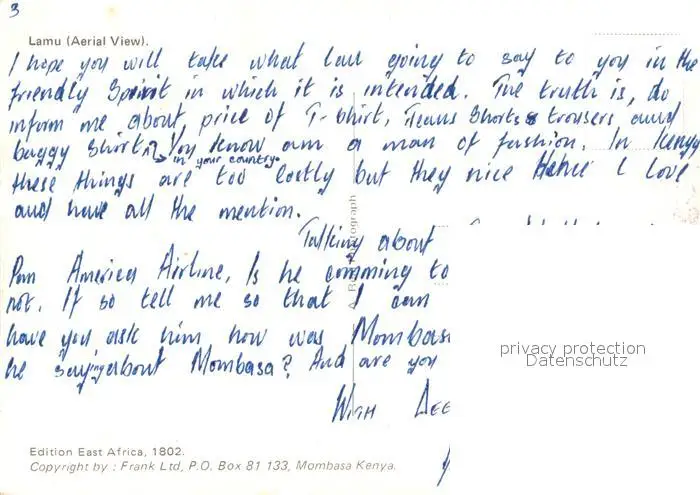 3
Lamu (Aerial View).
I hope you will take what I am going to say to you in the
friendly Spirit in which it is intended. The truth is, do
inform me about price of T-shirt, Jeans Shorts & trousers and
baggy Shorts. You know am a man of fashion. In Kenya
in your country.
these things are too costly but they nice Hence I love
and have all the mention.
Talking about
Pan America Airline, Is he comming to
not. If so tell me so that I can
have you ask him how was Mombas
he saying about Mombasa? And are you
With Dee
Edition East Africa, 1802.
Copyright by : Frank Ltd, P.O. Box 81 133, Mombasa Kenya.
privacy protection
Datenschutz